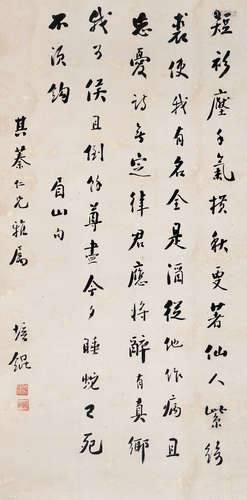 短衫壓手氣橫秋更著仙人紫綺
裘使我有名全是酒從他作病且
忘憂詩無定律君應將醉有真鄉
我可侯且倒餘尊盡今夕睡蛇已死
不須鉤 眉山句
其蓁仁兄雅屬
培錕